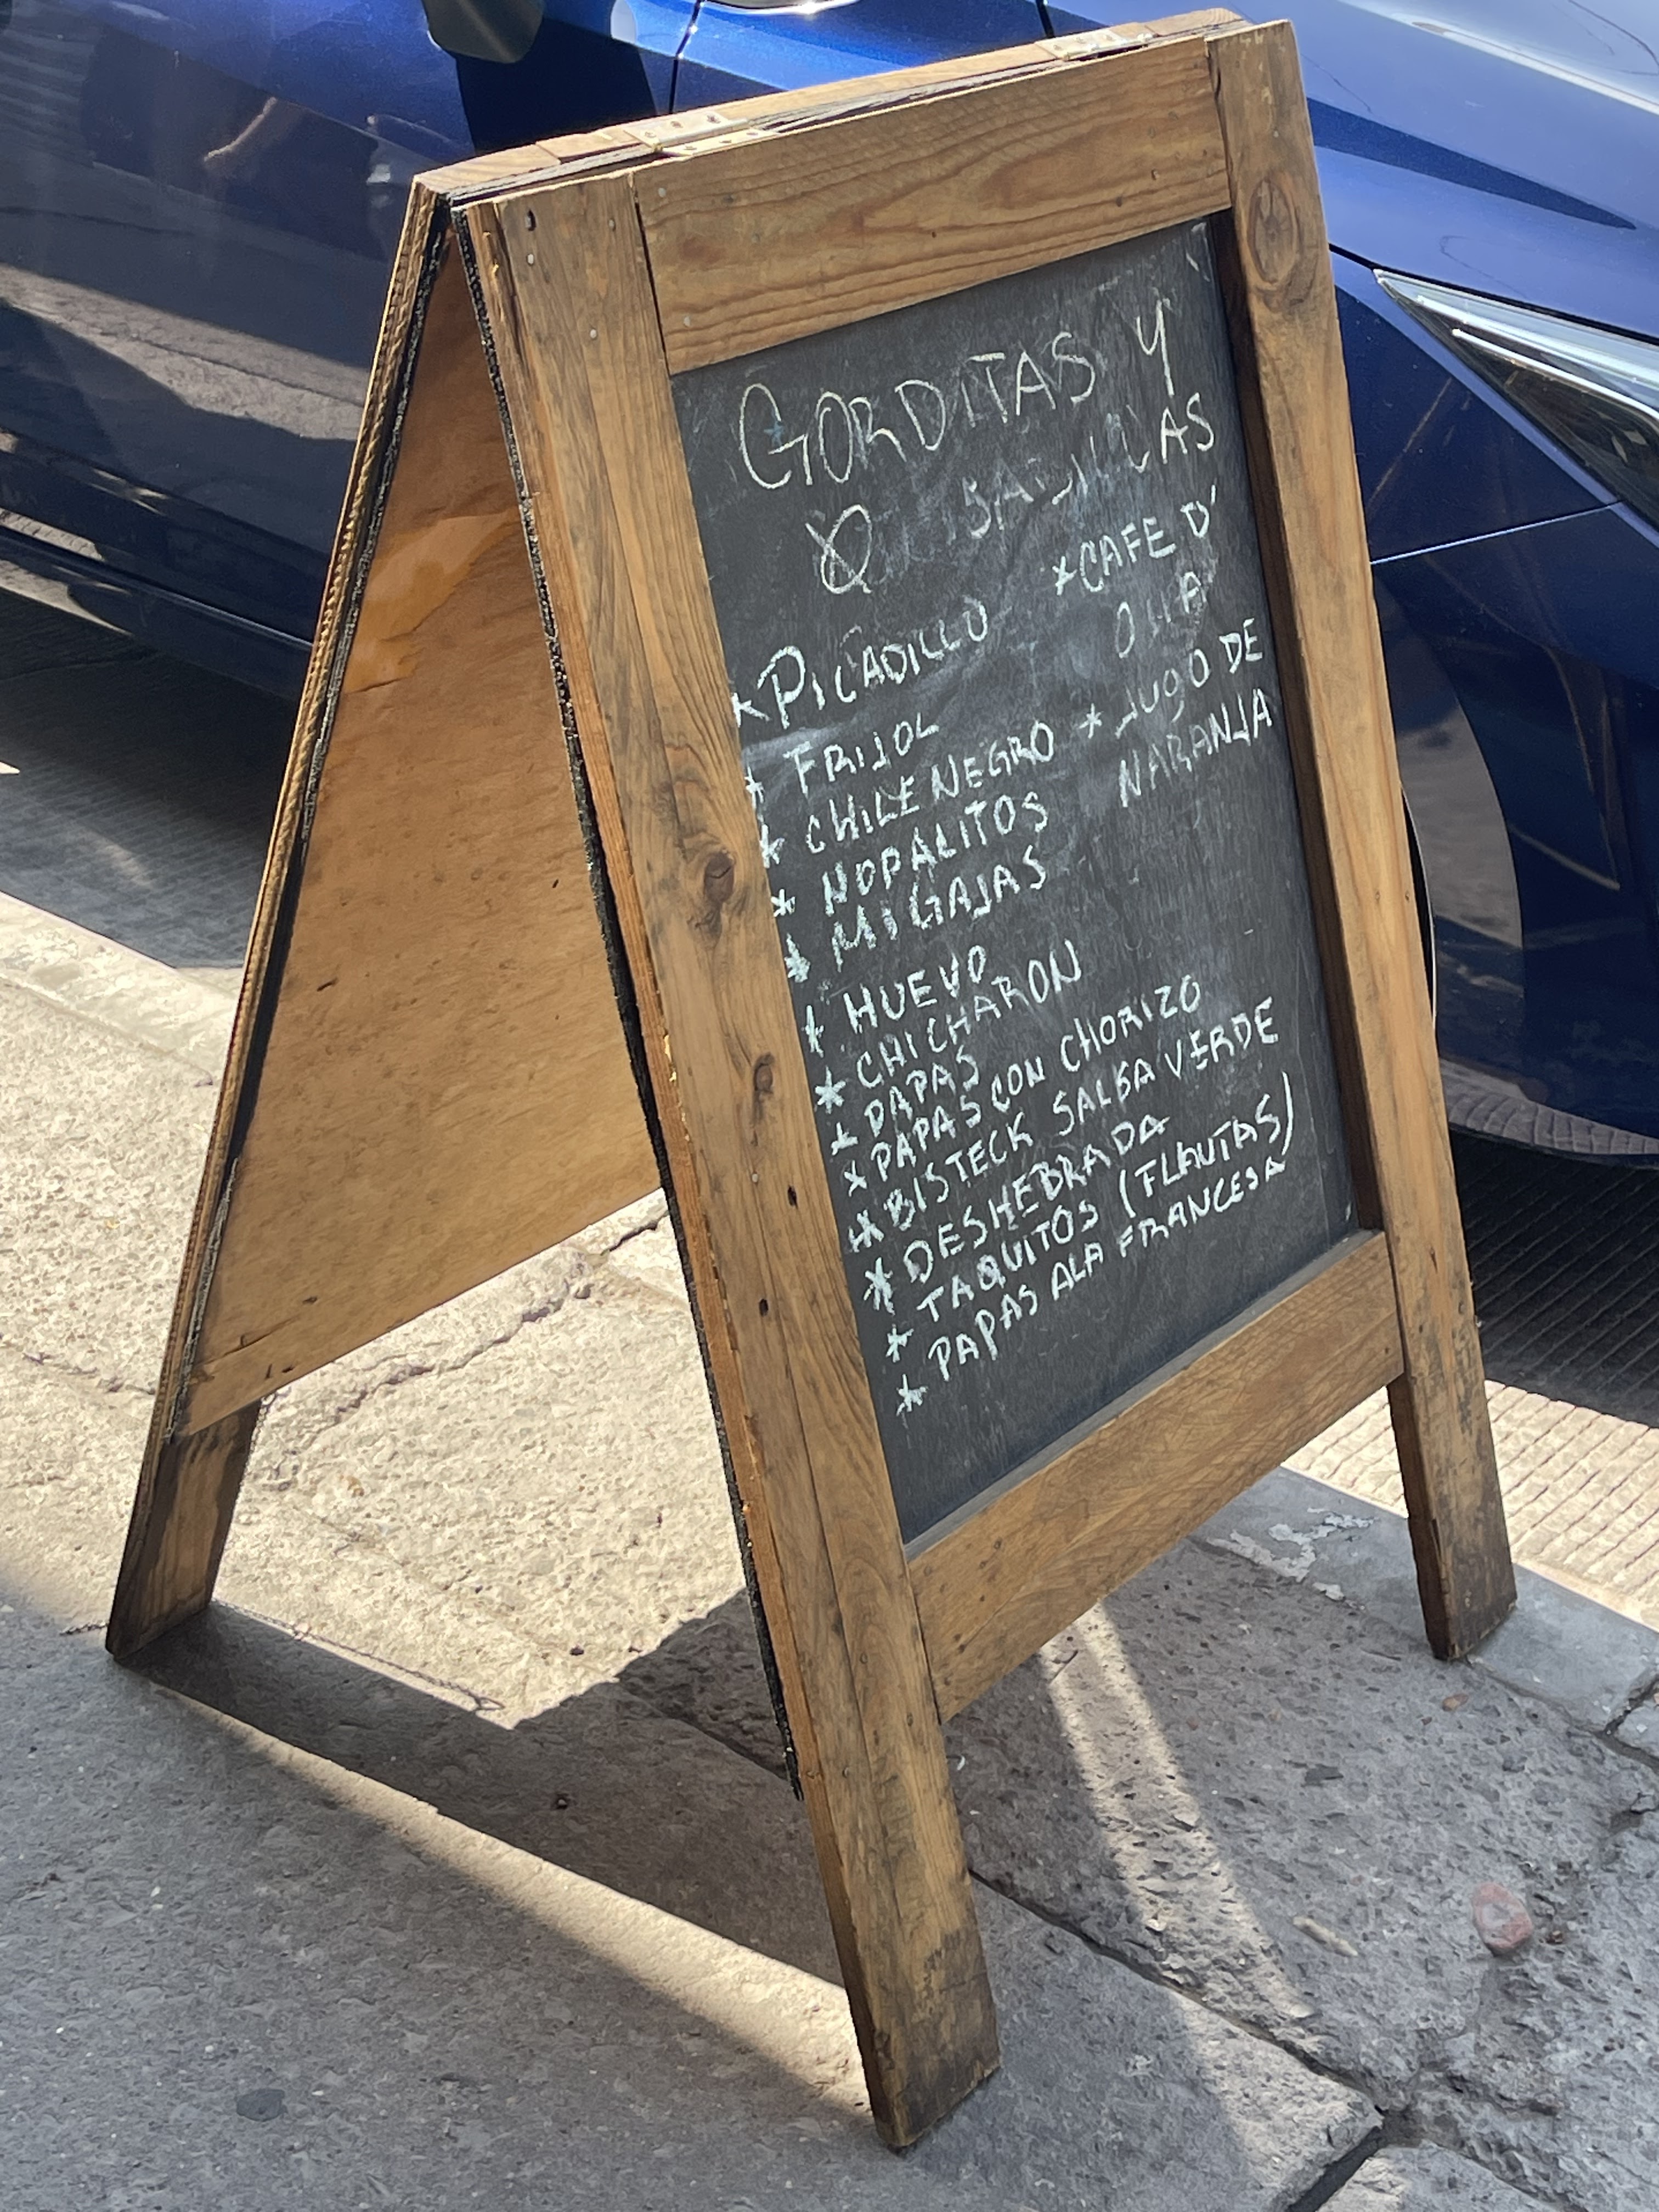 GORDITAS Y
* PICADILLO
* FRIJOL
* CHILE NEGRO
* NOPALITOS
* MIGAJAS
* HUEVO
* CHICHARON
* PAPAS
* PAPAS CON CHORIZO
* BISTECK SALSA VERDE
* DESHEBRADA
* TAQUITOS (FLAUTAS)
* PAPAS ALA FRANCESA
* CAFE D'
OLLA
* JUGO DE
NARANJA